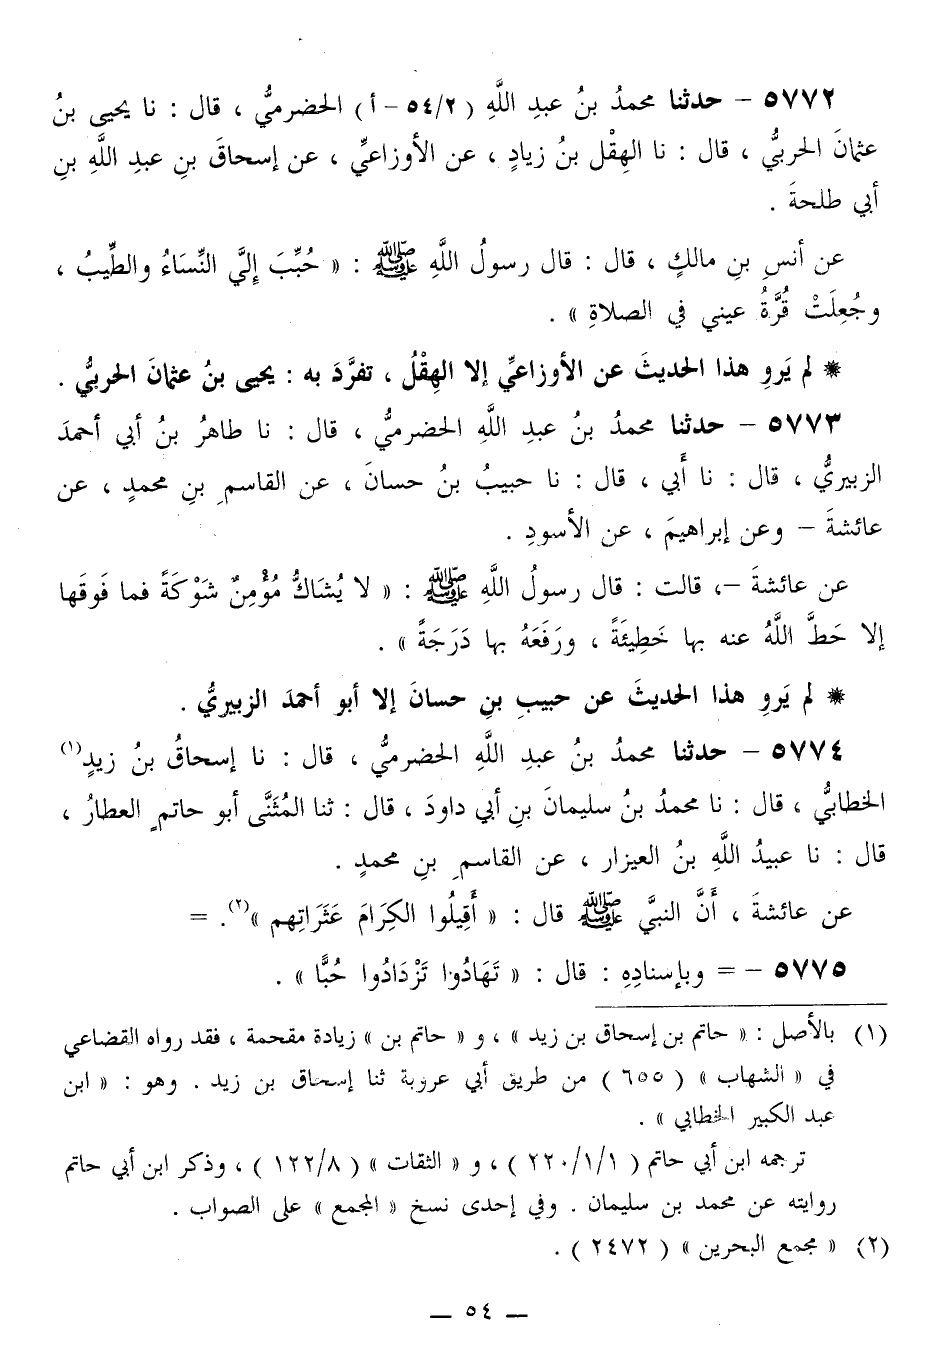 ٥٧٧٢ – حدثنا محمدُ بنُ عبدِ اللَّهِ ( ٥٤/٢ – أ ) الحضرميُّ ، قال : نا يحيى بنُ
عثمانَ الحربيُّ ، قال : نا الهِقْل بنُ زيادٍ ، عن الأوزاعيِّ ، عن إسحاقَ بنِ عبدِ اللَّهِ بنِ
أبي طلحةَ .
عن أنسِ بنِ مالكٍ ، قال : قال رسولُ اللَّهِ ﷺ : « حُبِّبَ إِلَيَّ النِّسَاءُ والطِّيبُ ،
وجُعِلَتْ قُرَّةُ عيني في الصلاةِ » .
* لم يَروِ هذا الحديثَ عن الأوزاعيِّ إلا الهِقْلُ ، تفرَّدَ به : يحيى بنُ عثمانَ الحربيُّ .
٥٧٧٣ – حدثنا محمدُ بنُ عبدِ اللَّهِ الحضرميُّ ، قال : نا طاهرُ بنُ أبي أحمدَ
الزبيريُّ ، قال : نا أَبي ، قال : نا حبيبُ بنُ حسانَ ، عن القاسمِ بنِ محمدٍ ، عن
عائشةَ – وعن إبراهيمَ ، عن الأسودِ .
عن عائشةَ –، قالت : قال رسولُ اللَّهِ ﷺ : « لا يُشَاكُ مُؤْمِنٌ شَوْكَةً فما فَوقَها
إلا حَطَّ اللَّهُ عنه بها خَطِيئَةً ، ورَفَعَهُ بها دَرَجَةً » .
* لم يَروِ هذا الحديثَ عن حبيبِ بنِ حسانَ إلا أبو أحمدَ الزبيريُّ .
٥٧٧٤ – حدثنا محمدُ بنُ عبدِ اللَّهِ الحضرميُّ ، قال : نا إسحاقُ بنُ زيدٍ(١)
الخطابيُّ ، قال : نا محمدُ بنُ سليمانَ بنِ أبي داودَ ، قال : ثنا المُثَنَّى أبو حاتمٍ العطارُ ،
قال : نا عبيدُ اللَّهِ بنُ العيزار ، عن القاسمِ بنِ محمدٍ .
عن عائشةَ ، أَنَّ النبيَّ ﷺ قال : « أَقِيلُوا الكِرَامَ عَثَرَاتِهم »(٢). =
٥٧٧٥ – = وبإسنادِهِ : قال : « تَهَادُوا تَزْدَادُوا حُبًّا » .
(١) بالأصل : « حاتم بن إسحاق بن زيد » ، و « حاتم بن » زيادة مقحمة ، فقد رواه القضاعي
في « الشهاب » ( ٦٥٥ ) من طريق أبي عروبة ثنا إسحاق بن زيد . وهو : « ابن
عبد الكبير الخطابي » .
ترجمه ابن أبي حاتم ( ٢٢٠/١/١ ) ، و « الثقات » ( ١٢٢/٨ ) ، وذكر ابن أبي حاتم
روايته عن محمد بن سليمان . وفي إحدى نسخ « المجمع » على الصواب .
(٢) « مجمع البحرين » ( ٢٤٧٢ ) .
— ٥٤ —